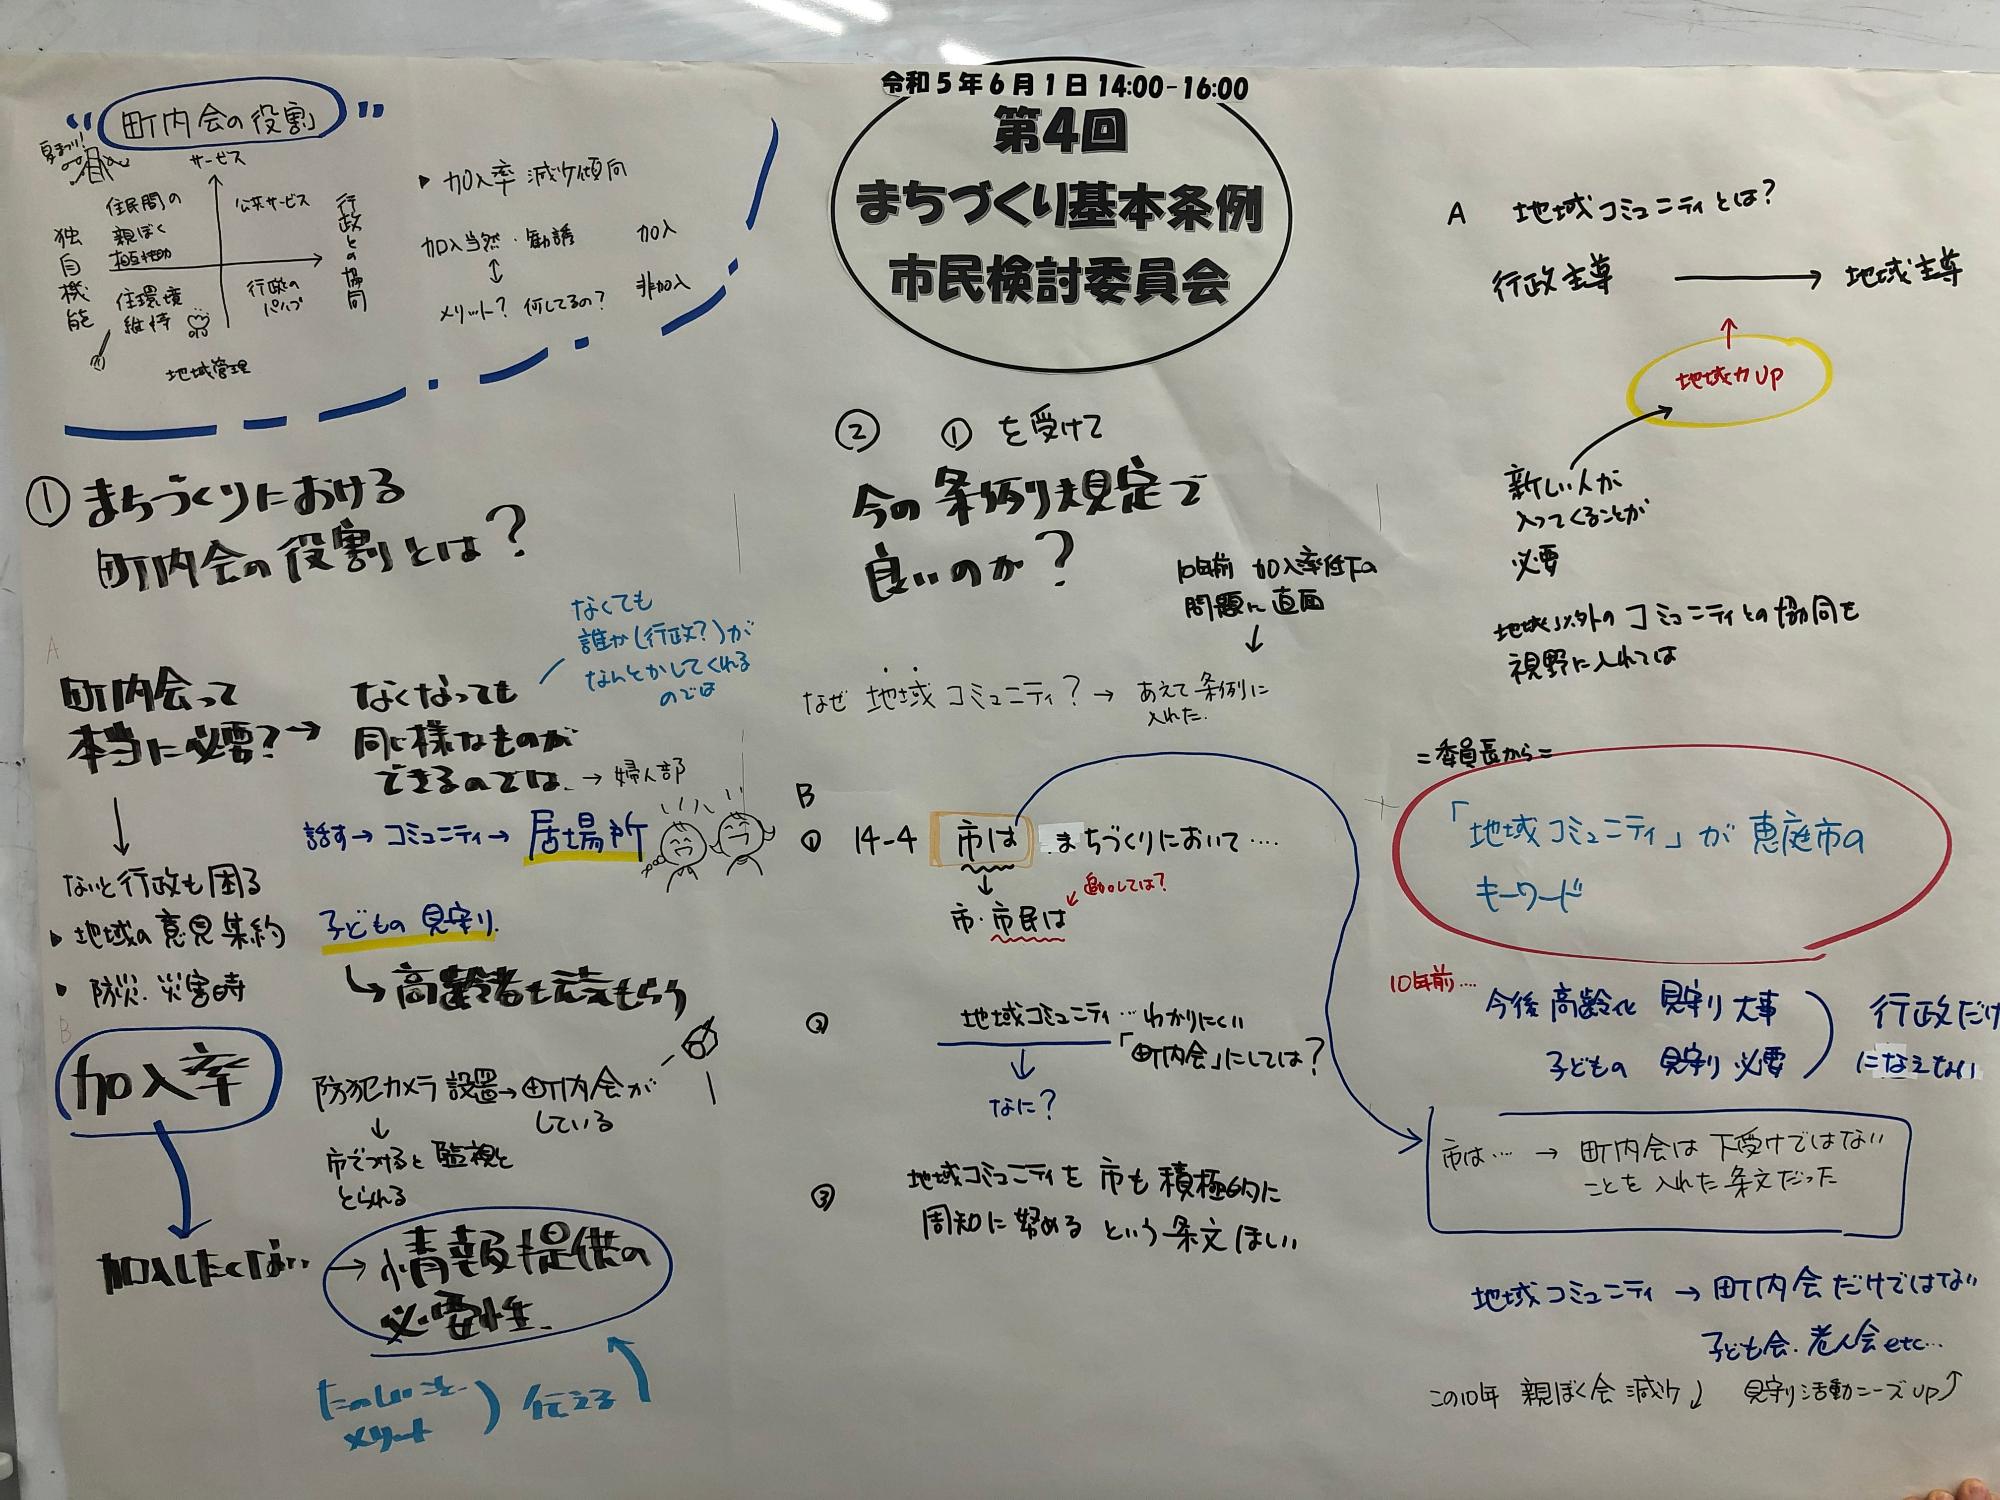 令和5年6月1日 14:00-16:00
第4回
まちづくり基本条例
市民検討委員会
"町内会の役割"
夏まつり!
サービス
住民間の
親ぼく
相互扶助
公共サービス
独自機能
行政との協同
住環境
維持
行政の
パイプ
地域管理
▸ 加入率 減少傾向
加入当然・勧誘 加入
↕
メリット? 何してるの? 非加入
① まちづくりにおける
町内会の役割とは?
A
町内会って
本当に必要?→
なくなっても
同じ様なものが
できるのでは. → 婦人部
なくても
誰か(行政?)が
なんとかしてくれる
のでは
話す→ コミュニティ→ 居場所
↓
ないと行政も困る
▸ 地域の意見集約
・ 防災・災害時
子どもの見守り.
↳ 高齢者も元気もらう
B
加入率
防犯カメラ設置→町内会が
している
↓
市でつけると監視と
とられる
加入したくない… → 情報提供の
必要性.
たのしいこと
メリット ) 伝える
② ①を受けて
今の条例規定で
良いのか?
10年前 加入率低下の
問題に直面
↓
なぜ 地域コミュニティ? → あえて条例に
入れた.
B
① 14-4 市は まちづくりにおいて‥‥
↓
市・市民は
追加しては?
② 地域コミュニティ…わかりにくい
「町内会」にしては?
↓
なに?
③ 地域コミュニティを 市も積極的に
周知に努める という条文ほしい
A 地域コミュニティとは?
行政主導 → 地域主導
↑
地域力UP
新しい人が
入ってくることが
必要
地域以外のコミュニティとの協同を
視野に入れては
=委員長から=
「地域コミュニティ」が恵庭市の
キーワード
10年前‥‥
今後高齢化 見守り大事
子どもの 見守り必要
行政だけ
になえない
市は… → 町内会は下受けではない
ことを入れた条文だった
地域コミュニティ → 町内会だけではない
子ども会・老人会etc…
この10年 親ぼく会減少↓ 見守り活動ニーズUP↑